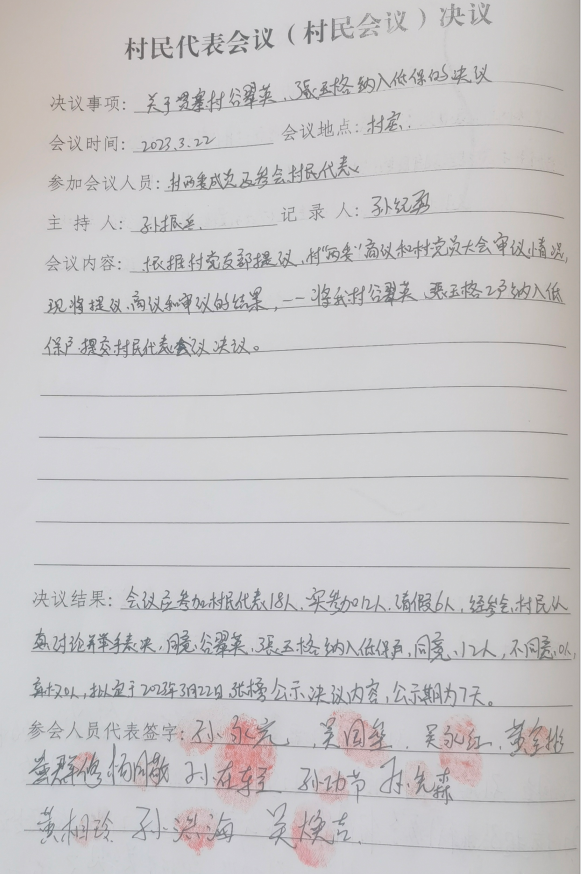 村民代表会议（村民会议）决议
决议事项：关于贾寨村谷翠英、张玉格纳入低保的决议
会议时间：2023.3.22 会议地点：村室.
参加会议人员：村两委成员及参会村民代表
主持人：孙振 记录人：孙纪
会议内容：根据村党支部提议，村“两委”商议和村党员大会审议情况，
现将提议、商议和审议的结果，一一将我村谷翠英、张玉格2户纳入低
保户提交村民代表会议决议。
决议结果：会议应参加村民代表18人，实参加12人，请假6人，经参会村民认
真讨论并举手表决，同意谷翠英、张玉格纳入低保户，同意12人，不同意0人，
弃权0人，拟定于2023年3月22日张榜公示决议内容，公示期为7天。
参会人员代表签字：孙永 吴国 吴永红、黄
黄群 杨同敬 孙在 孙功节 孙先森
黄相玲 孙海 吴焕吉.